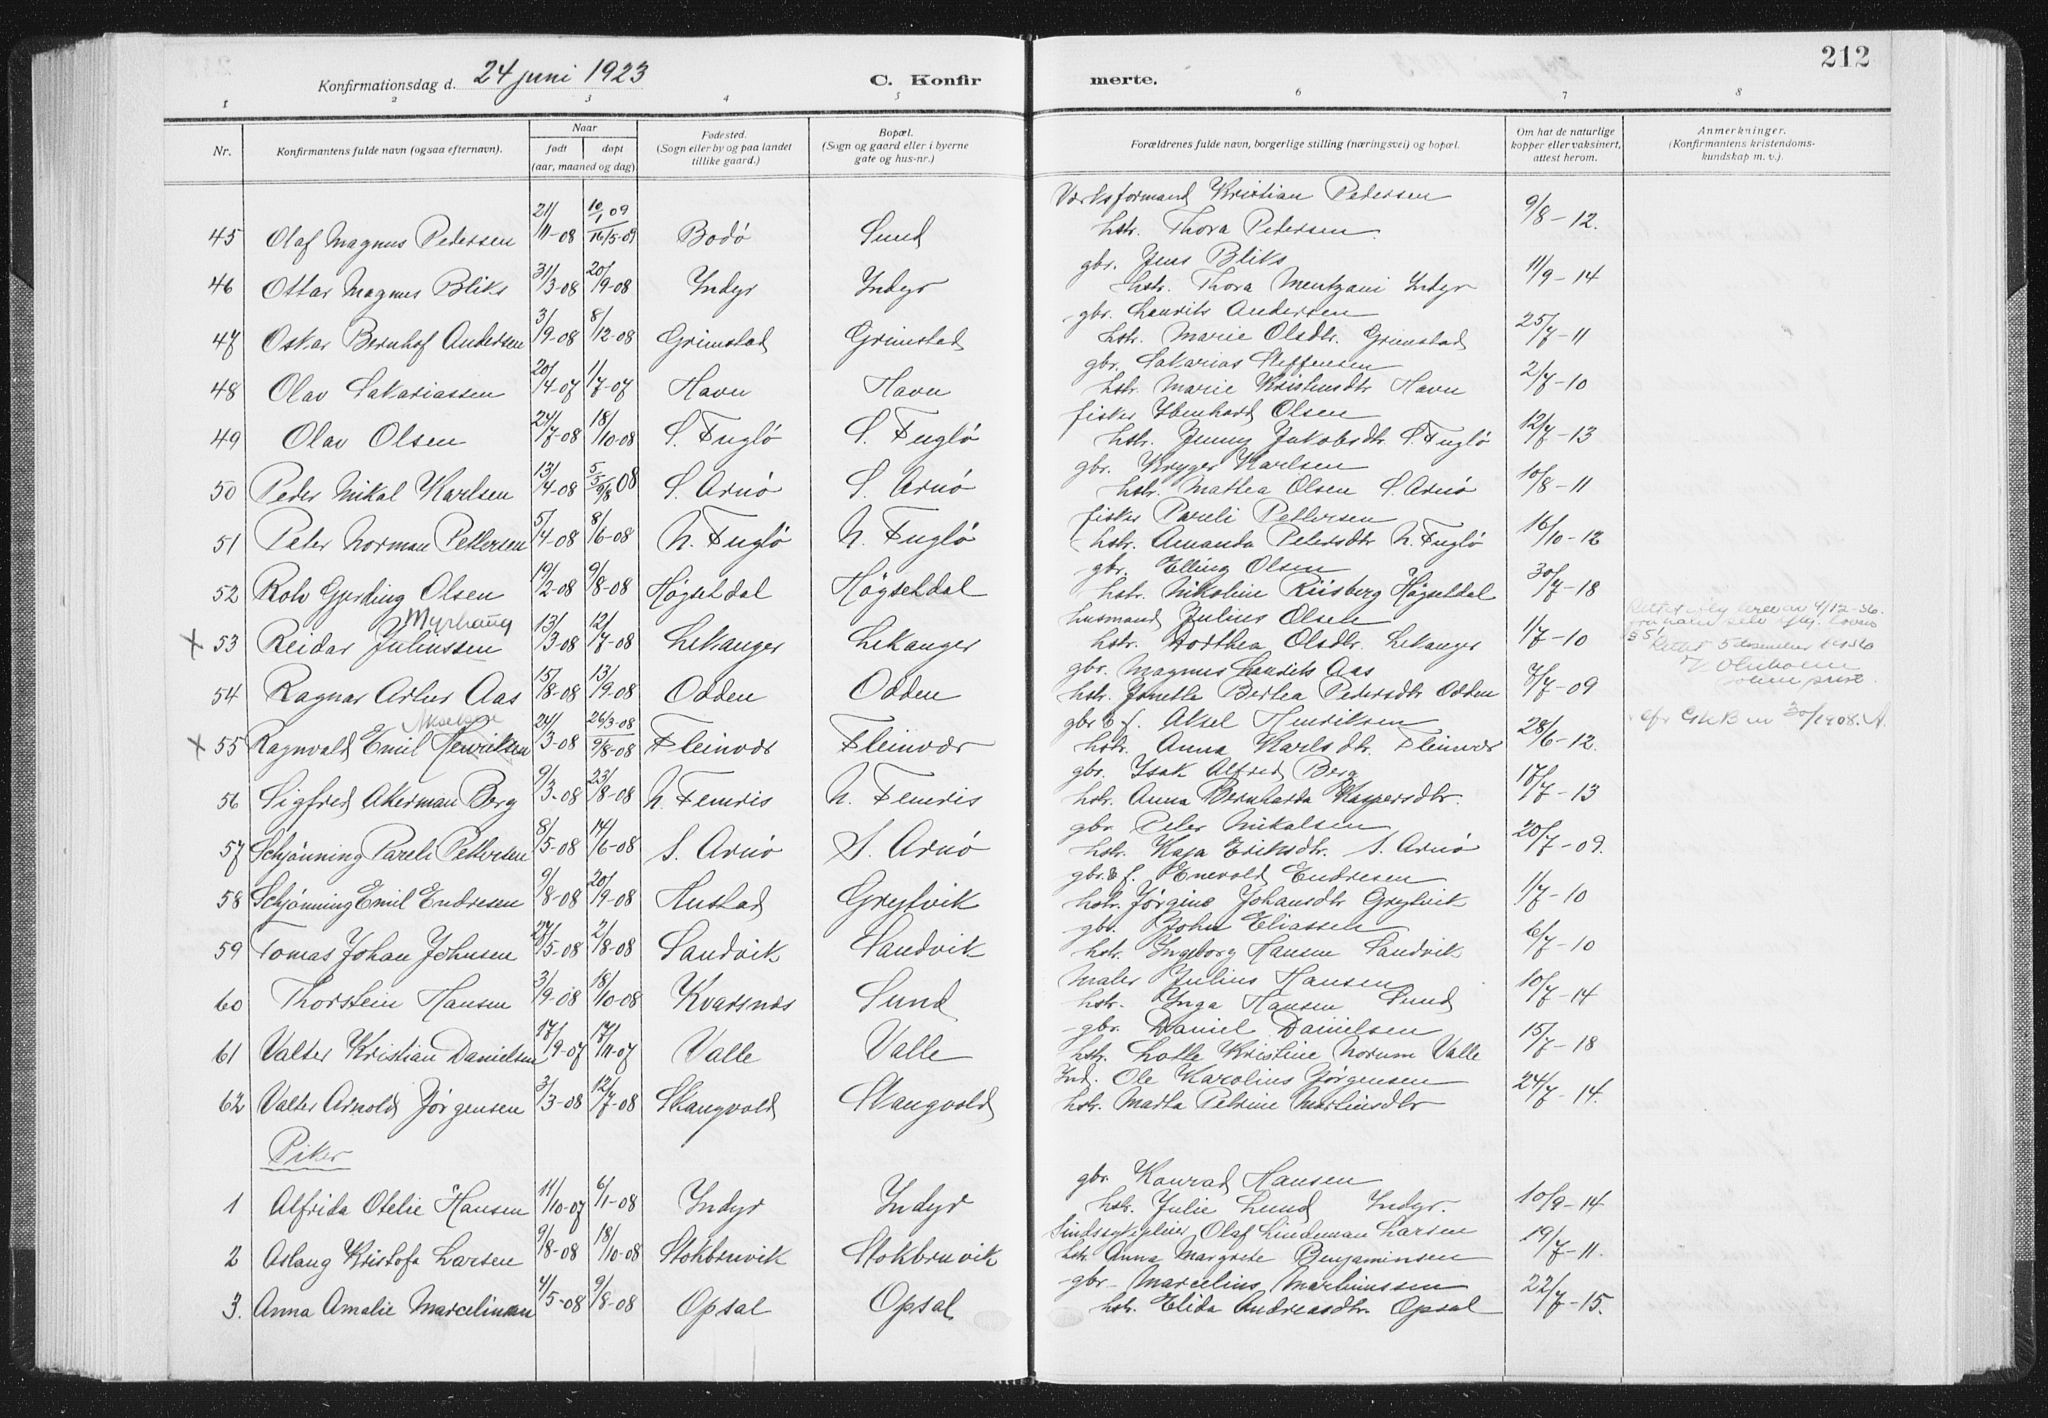 212
Konfirmationsdag d. 24 juni 1923 C. Konfirmerte.
1 2 3 4 5 6 7 8
Nr. Konfirmantens fulde navn (ogsaa efternavn). Naar født døpt (aar, maaned og dag) Fødested. (Sogn eller by og paa landet tillike gaard.) Bopæl. (Sogn og gaard eller i byerne gate og hus-nr.) Forældrenes fulde navn, borgerlige stilling (næringsvei) og bopæl. Om hat de naturlige kopper eller vaksinert, attest herom. Anmerkninger. (Konfirmantens kristendomskundskap m. v.).
Værksformand Kristian Pedersen
45 Olaf Magnus Pedersen 21/11-08 10/1 09 16/5-09 Bodö Sund hstr. Thora Petersen 9/8-12.
gbr. Jens Bliks
46 Ottar Magnus Bliks 31/3-08 20/9-08 Indyr Indyr hstr. Thora Mentzoni Indyr 11/9-14
gbr. Laurits Andersen
47 Oskar Bernhof Andersen 3/9-08 8/12-08 Grimstad Grimstad hstr. Marie Olsdtr. Grimstad 25/7-11
gbr. Sakarias Steffensen
48 Olav Sakariassen 20/4-07 1/7-07 Havn Havn hstr. Marie Kristensdtr Havn 2/7-10
fisker Ibenhard Olsen
49 Olav Olsen 24/7-08 18/10-08 S. Fuglö S. Fuglö hstr. Jenny Jakobsdtr S. Fuglö 12/7-13
gbr. Kryger Karlsen
50 Peder Mikal Karlsen 13/4-08 5/5 9/8 08 S. Arnö S. Arnö hstr. Mathea Olsen S. Arnö 10/8-11
fisker Pareli Pettersen
51 Peter Norman Pettersen 5/4-08 8/6-08 N. Fuglö N. Fuglö hstr. Amanda Petersdtr N. Fuglö 16/10-12
gbr. Elling Olsen
52 Rolv Gerding Olsen 19/2-08 9/8-08 Högseldal Högseldal hstr. Nikoline Riisberg Högseldal 30/7-18
Myrhaug husmand Julius Olsen
x 53 Reidar Juliussen 13/3-08 12/7-08 Lekanger Lekanger hstr. Dorthea Olsdtr. Lekanger 1/7-10
gbr. Magnus Laurits Aas
54 Ragnar Artur Aas 15/8-08 13/9-08 Odden Odden hstr. Jonetta Bertea Petersdtr Odden 7/7-09
Akselsen gbr. & f. Aksel Henriksen
x 55 Ragnvald Emil Henriksen 24/3-08 26/3-08 9/8-08 Fleinvær Fleinvær hstr. Anna Karlsdtr. Fleinvær 28/6-12.
gbr. Isak Alfred Berg
56 Sigfred Akerman Berg 9/3-08 23/8-08 N. Femris N. Femris hstr. Anna Bernharda Kaspersdtr. 17/7-13
gbr. Peter Mikalsen
57 Schjönning Pareli Pettersen 8/5-08 14/6-08 S. Arnö S. Arnö hstr. Kaja Eriksdtr. S. Arnö 20/7-09.
gbr. & f. Enevold Endresen
58 Schjönning Emil Endresen 9/8-08 20/9-08 Hustad Greytvik hstr. Jørgine Johansdtr Greytvik 1/7-10
gbr. John Eliassen
59 Tomas Johan Johnsen 27/5-08 2/8-08 Sandvik Sandvik hstr. Ingeborg Hansen Sandvik 6/7-10
Maler Julius Hansen
60 Thorstein Hansen 3/9-08 18/10-08 Kvarsnes Sund hstr. Inga Hansen Sund 10/7-14
gbr. Daniel Danielsen
61 Valter Kristian Danielsen 17/9-07 17/11-07 Valle Valle hstr. Lotte Kristine Norum Valle 15/7-18
Ind. Ole Karolius Jørgensen
62 Valter Arnold Jørgensen 3/3-08 12/7-08 Skangvold Skangvold hstr. Marta Petrine Martinsdtr 24/7-14.
Piker
gbr. Konrad Hansen
1 Alfrida Otelie Hansen 11/10-07 6/1-08 Indyr Indyr hstr. Julie Lund Indyr. 10/9-14
Sindssykepleier Olaf Lindeman Larsen
2 Aslaug Kristofa Larsen 9/8-08 18/10-08 Stokbruvik Stokbruvik hstr. Anna Margrete Benjaminsen 19/7-11.
gbr. Marcelius Martinussen
3. Anna Amalie Marceliussen 4/5-08 9/8-08 Opsal Opsal hstr. Elida Andreasdtr. Opsal 22/7-15.